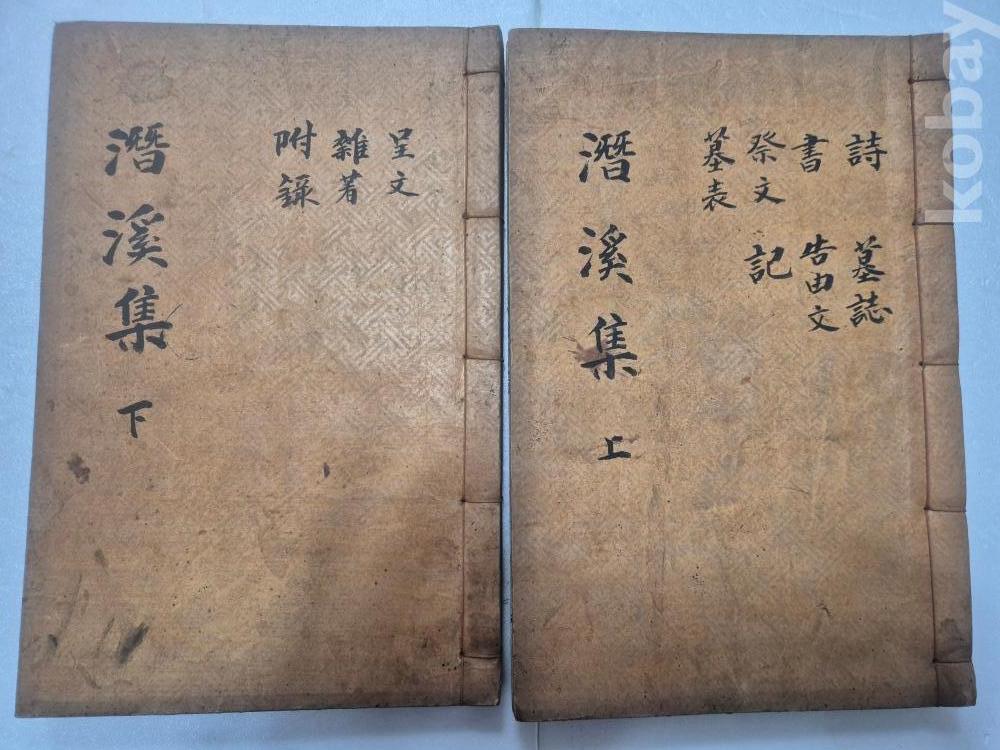 詩 墓誌
書 告由文
祭文 記
墓表
潛溪集 上
呈文
雜著
附錄
潛溪集 下
kobay